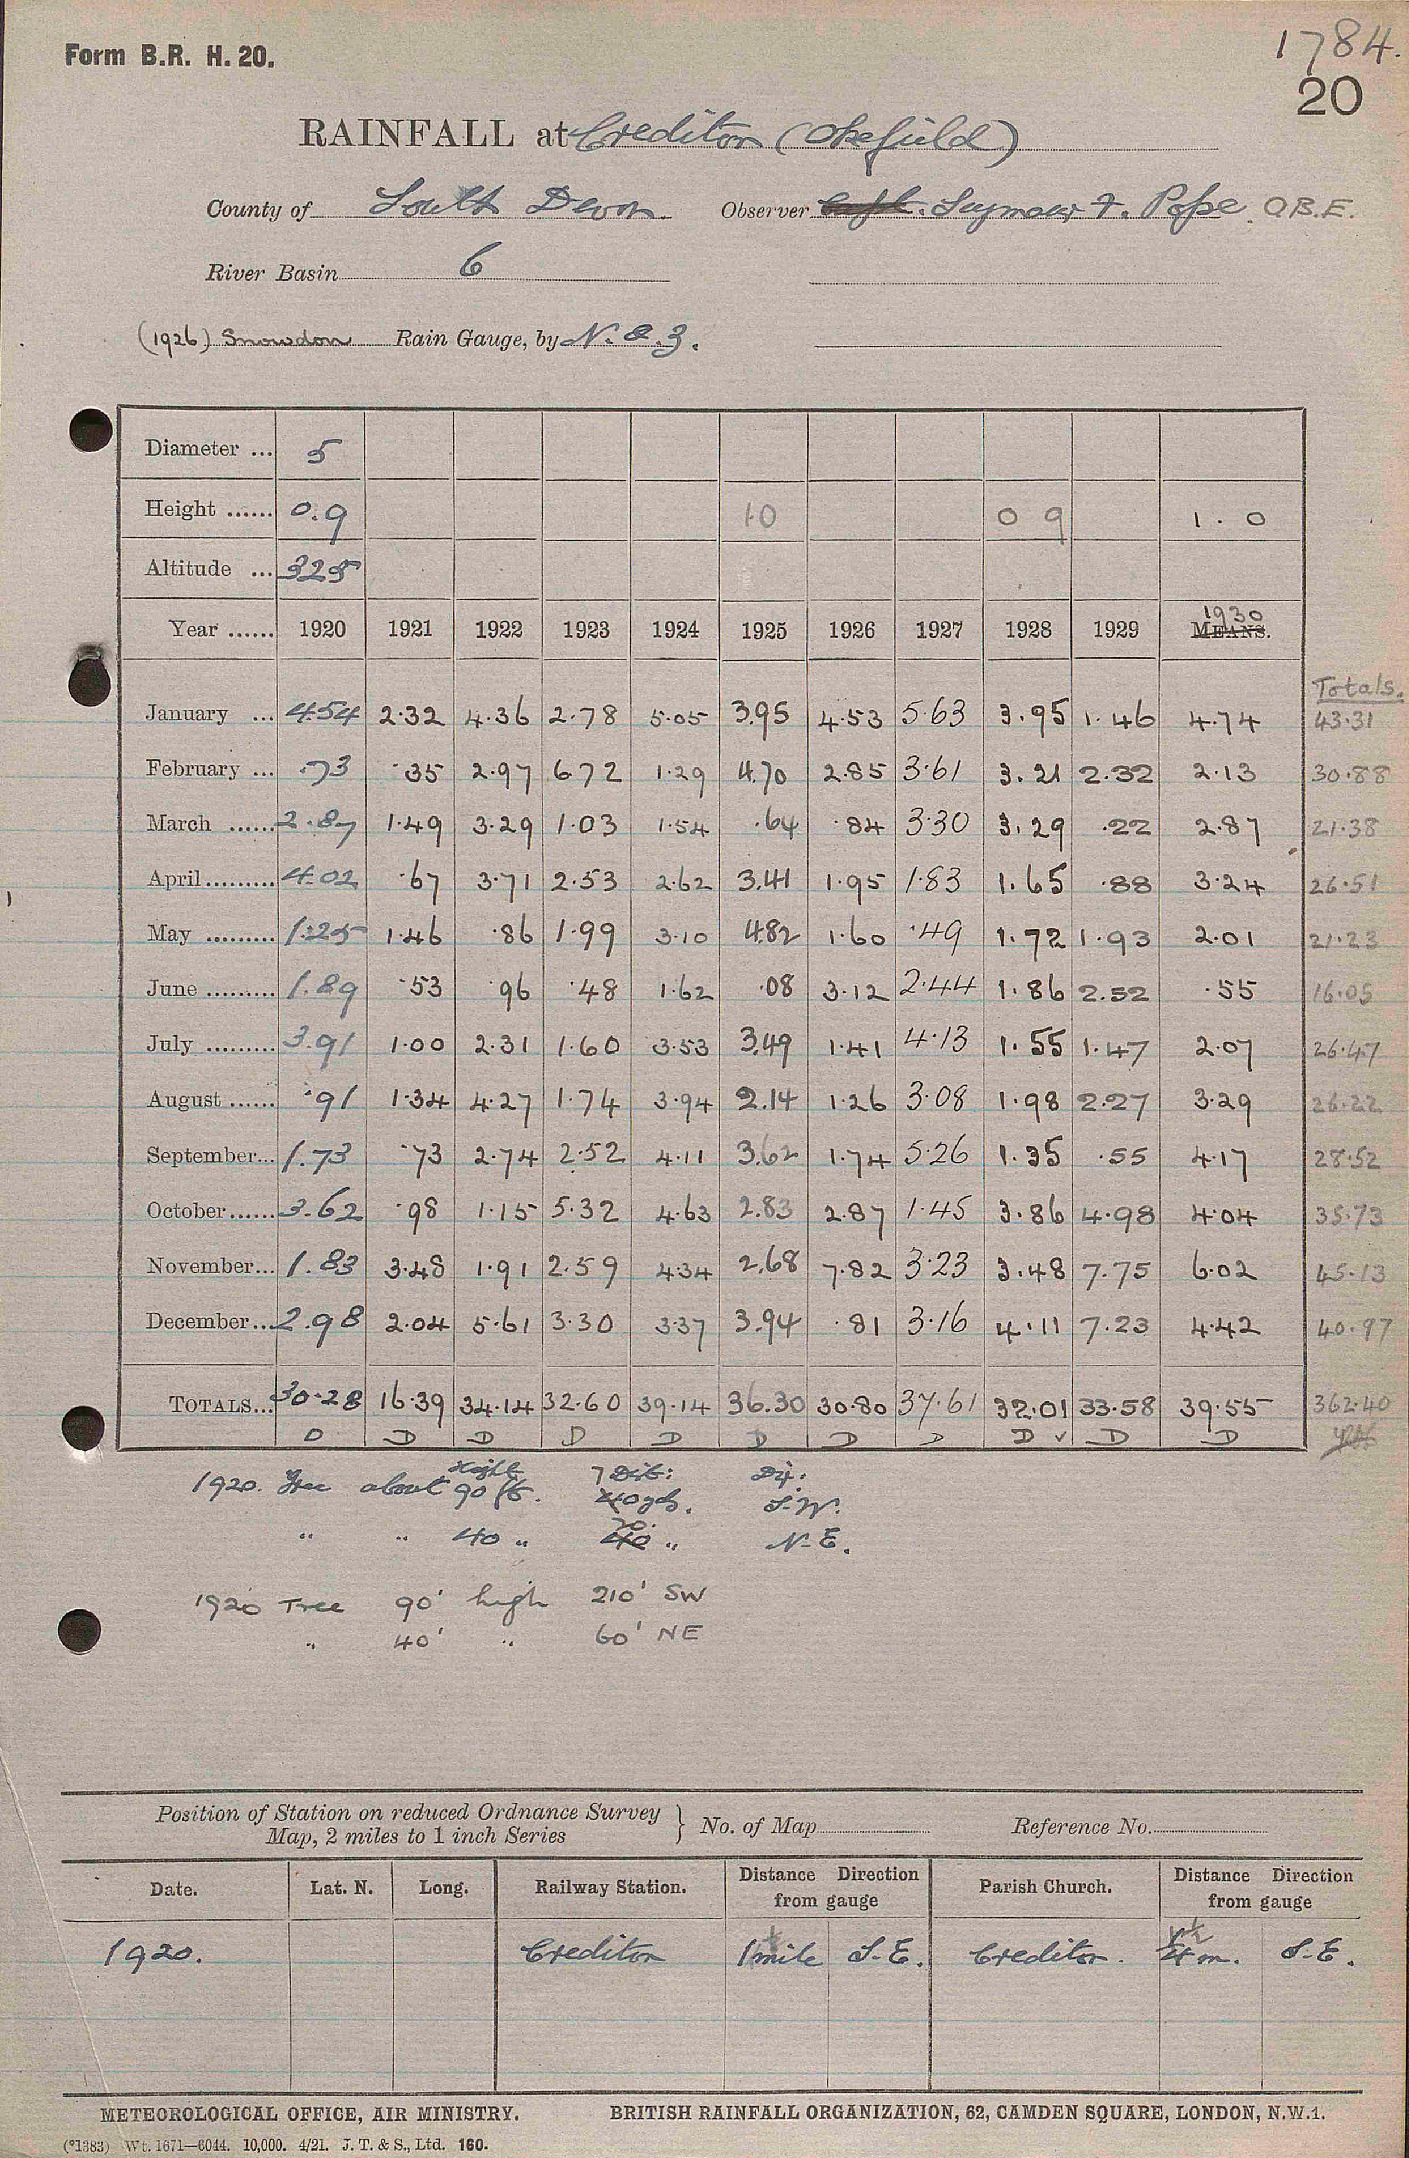 Form B.R. H. 20.
1784.
20
RAINFALL at Crediton (Okefield)
County of South Devon Observer Capt. Seymour T. Pope O.B.E.
River Basin 6
(1926) Snowdon Rain Gauge, by N. & Z.
Diameter ... 5
Height ...... 0.9 1.0 0 9 1.0
Altitude ... 325
Year ...... 1920 1921 1922 1923 1924 1925 1926 1927 1928 1929 1930 MEANS.
Totals.
January ... 4.54 2.32 4.36 2.78 5.05 3.95 4.53 5.63 3.95 1.46 4.74 43.31
February ... .73 .35 2.97 6.72 1.29 4.70 2.85 3.61 3.21 2.32 2.13 30.88
March ...... 2.87 1.49 3.29 1.03 1.54 .64 .84 3.30 3.29 .22 2.87 21.38
April ......... 4.02 .67 3.71 2.53 2.62 3.41 1.95 1.83 1.65 .88 3.24 26.51
May ......... 1.25 1.46 .86 1.99 3.10 4.82 1.60 .49 1.72 1.93 2.01 21.23
June ......... 1.89 .53 .96 .48 1.62 .08 3.12 2.44 1.86 2.52 .55 16.05
July ......... 3.91 1.00 2.31 1.60 3.53 3.49 1.41 4.13 1.55 1.47 2.07 26.47
August ...... .91 1.34 4.27 1.74 3.94 2.14 1.26 3.08 1.98 2.27 3.29 26.22
September... 1.73 .73 2.74 2.52 4.11 3.62 1.74 5.26 1.35 .55 4.17 28.52
October ...... 3.62 .98 1.15 5.32 4.63 2.83 2.87 1.45 3.86 4.98 4.04 35.73
November ... 1.83 3.48 1.91 2.59 4.34 2.68 7.82 3.23 3.48 7.75 6.02 45.13
December ... 2.98 2.04 5.61 3.30 3.37 3.94 .81 3.16 4.11 7.23 4.42 40.97
TOTALS... 30.28 16.39 34.14 32.60 39.14 36.30 30.80 37.61 32.01 33.58 39.55 362.40
D D D D D D D D D ✓ D D
Height Dist: Dir:
1920. Tree about 90 ft. 40 yds. S.W.
" " 40 " 40 20 " N-E.
1920 Tree 90' high 210' SW
" 40' " 60' NE
Position of Station on reduced Ordnance Survey Map, 2 miles to 1 inch Series } No. of Map Reference No.
Date. Lat. N. Long. Railway Station. Distance Direction from gauge Parish Church. Distance Direction from gauge
1920. Crediton 1 mile S-E. Crediton. m. S-E.
METEOROLOGICAL OFFICE, AIR MINISTRY. BRITISH RAINFALL ORGANIZATION, 62, CAMDEN SQUARE, LONDON, N.W.1.
(*1383) Wt. 1671—6044. 10,000. 4/21. J. T. & S., Ltd. 160.